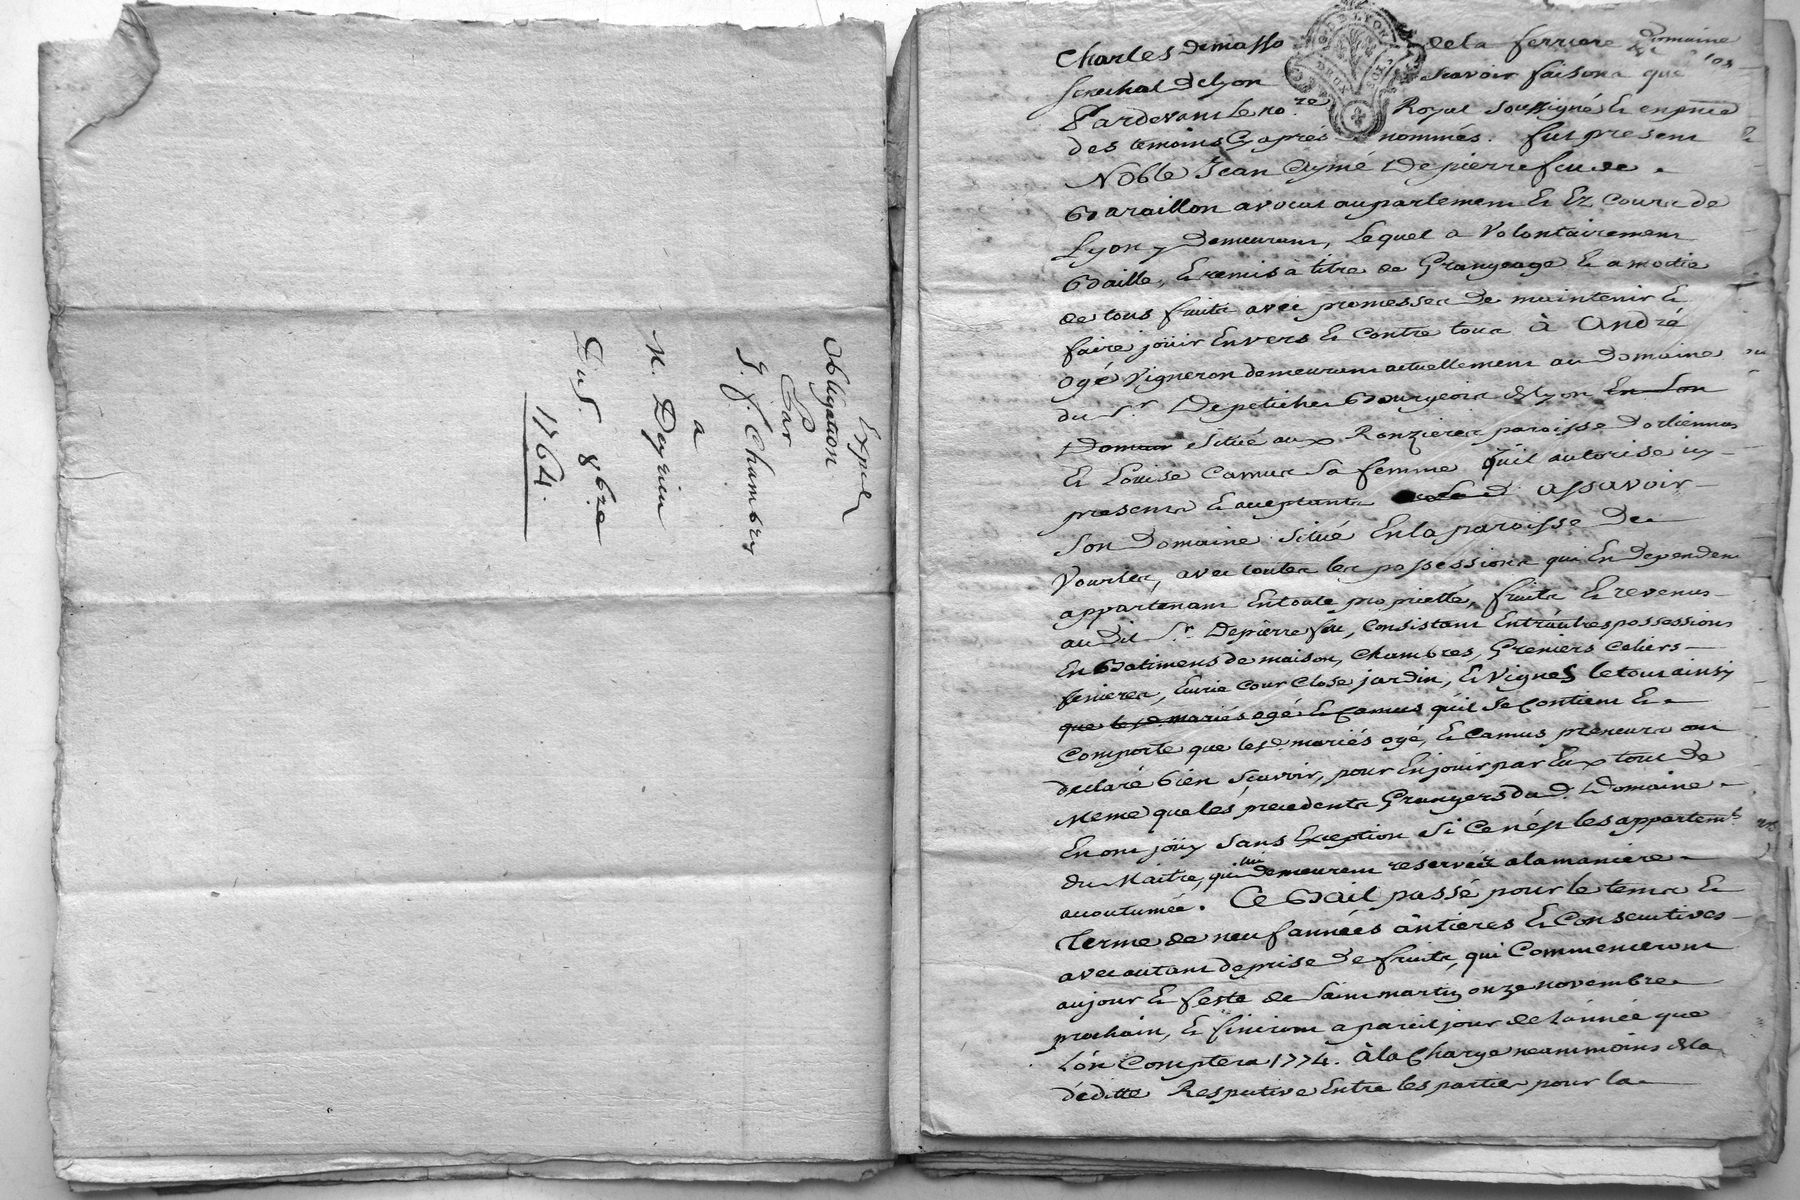 Expéd
Obligation
Par
J. f. Chambry
a
M. Deyrieu
Du 5. 8bre
1764.
Charles demasso dela ferriere Domaine
senechal delyon scavoir faisons que
Pardevant le no.re Royal soussigné & en pnce
des temoins Cy après nommés. fut present
Noble Jean Ayme Depierrefeu de
Baraillon avocat auparlement & Ez Cours de
Lyon y Demeurant, Lequel a Volontairement
Baillé, & remis à titre de Grangeage & a moitie
de tous fruits avec promesses de maintenir &
faire joüir Envers & Contre tous à André
ogé Vigneron demeurant actuellement au Domaine
du Sr. Depetiches Bourgeois delyon En Son
Domaine Situé aux Ronzieres paroisse Dorliennas
& Louise Camus Sa femme Quil autorise icy
presents & acceptants assavoir
Son Domaine Situé En la paroisse De
Vourles, avec toutes les possessions qui En Dependent
appartenant En toute proprietté, fruits & revenus
au Dit Sr. Depierrefeu, Consistant Entrautres possessions
En Batimens de maison, Chambres, Greniers Celiers
fenieres, Eurie Cour Close jardin, & Vignes le tout ainsy
que lesd. mariés ogé & Camus quil Se Contient &
Comporte que lesd. mariés ogé, & Camus preneurs ont
declaré bien Scavoir, pour En jouir par Eux tout De
Meme que les precedents Grangers Dud. Domaine
En ont joüy Sans Exception Si Ce n'est les appartemts.
du Maitre, qui lui Demeurent reservéz a la maniere
accoutumée. Ce Bail passé pour le tems &
Terme de neuf années antieres & Consecutives
avec autant de prise De fruits, qui Commenceront
au jour & feste de Saint martin onze novembre
prochain, & finiront a pareil jour de l'année que
L'on Comptera 1774. à la Charge neammoins de la
déditte Respective Entre les parties pour la